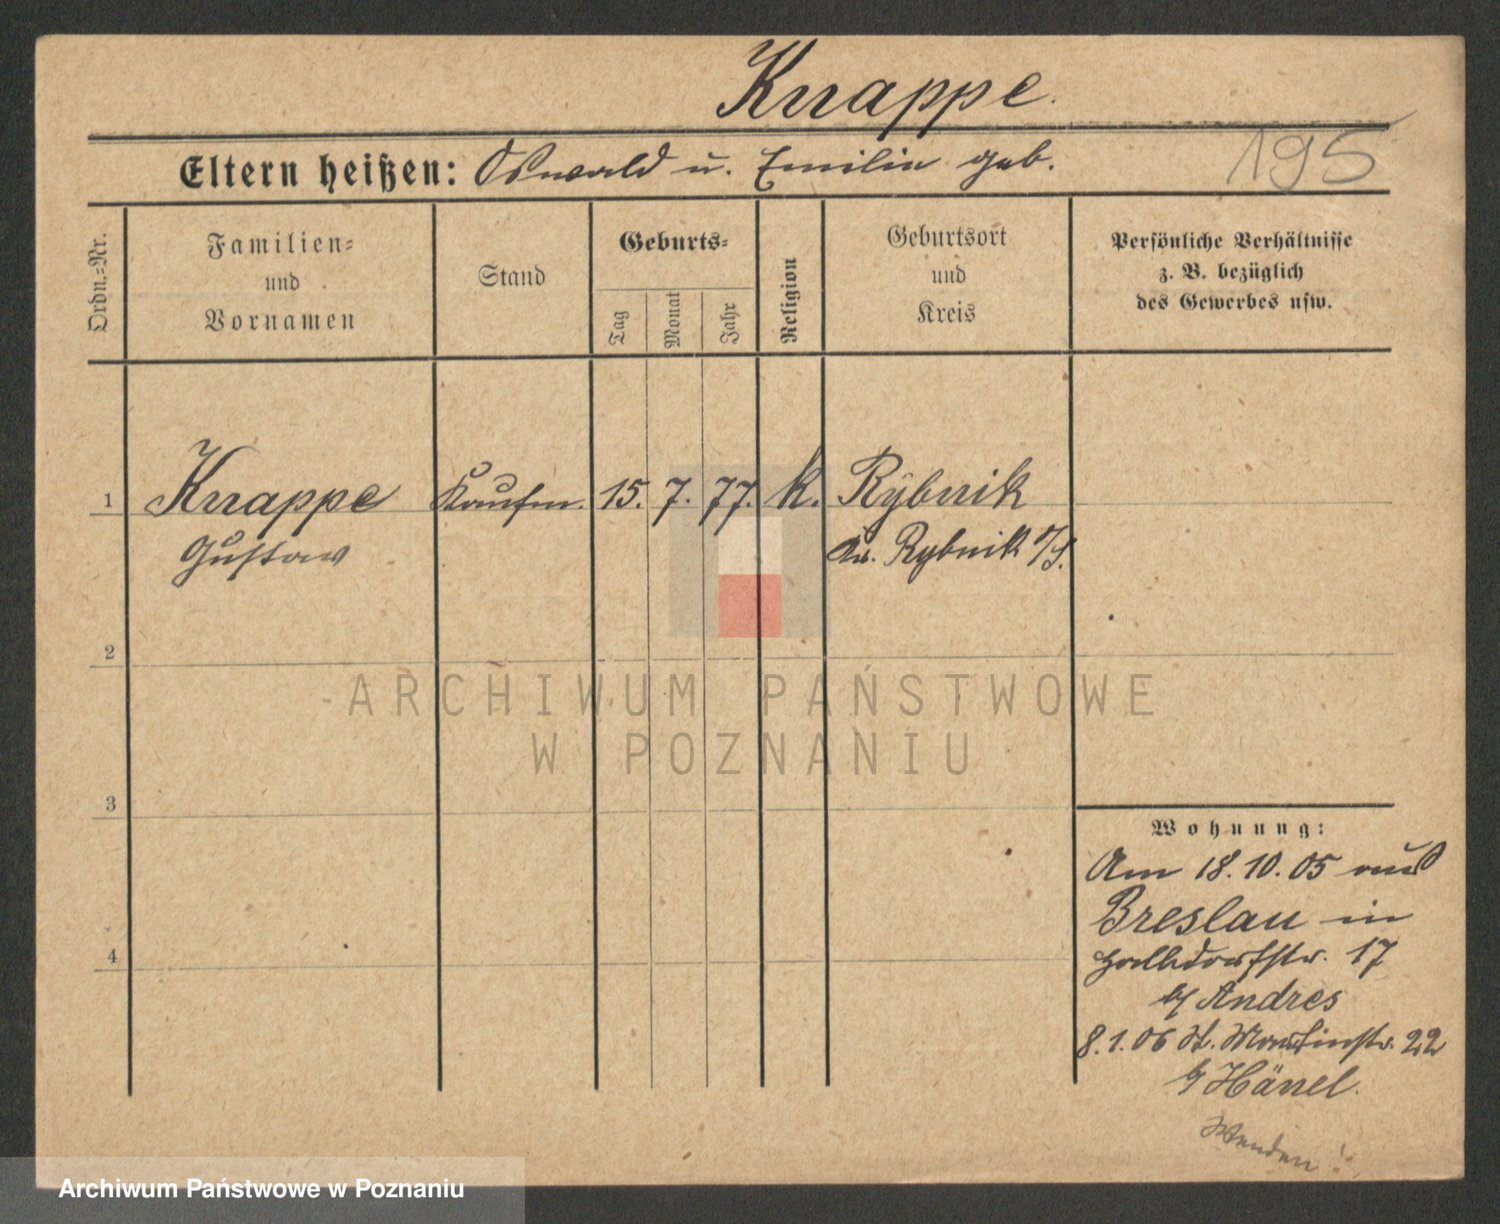 Knappe.
195
Eltern heißen: Oswald u. Emilie geb.
Ordn.=Nr.
Familien=
und
Vornamen
Stand
Geburts=
Tag
Monat
Jahr
Religion
Geburtsort
und
Kreis
Persönliche Verhältnisse
z. B. bezüglich
des Gewerbes usw.
1 Knappe Kaufm. 15. 7. 77. k. Rybnik
Gustav Kr. Rybnik O/S.
2
3
4
Wohnung:
Am 18.10.05 aus
Breslau in
17
b/ Andres
8.1.06 St. Martinstr. 22
b/ Hänel.
Wenden!
ARCHIWUM PAŃSTWOWE
W POZNANIU
Archiwum Państwowe w Poznaniu